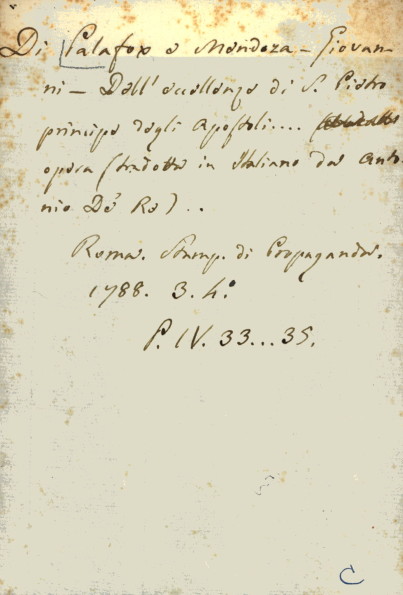 Di Palafox e Mendoza - Giovan-
ni - Dell'eccellenza di S. Pietro
principe degli Apostoli....
opera (tradotta in Italiano da Anto-
nio De' Re) ..
Roma. Stamp. di Propaganda.
1788. 3. 4.°
P. IV. 33...35.
C